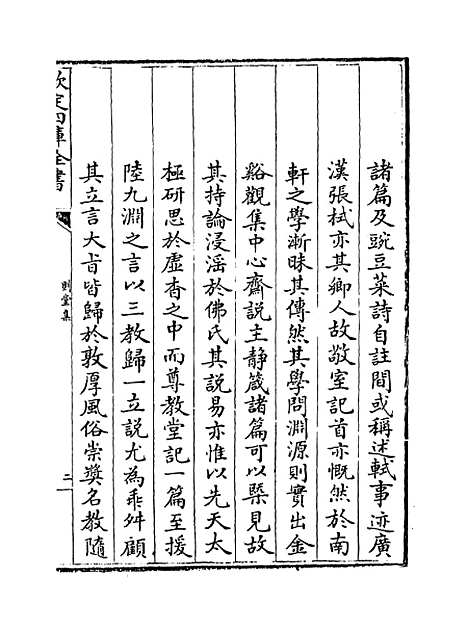 諸篇及豌豆菜詩自註間或稱述軾事迹廣
漢張栻亦其鄉人故敬室記首亦慨然於南
軒之學漸昧其傳然其學問淵源則實出金
谿觀集中心齋説主静箴諸篇可以槩見故
其持論浸滛於佛氏其説易亦惟以先天太
極研思於虚杳之中而尊教堂記一篇至援
陸九淵之言以三教歸一立説尤為乖舛顧
其立言大㫖皆歸於敦厚風俗崇奬名教隨
欽定四庫全書
則堂集
二